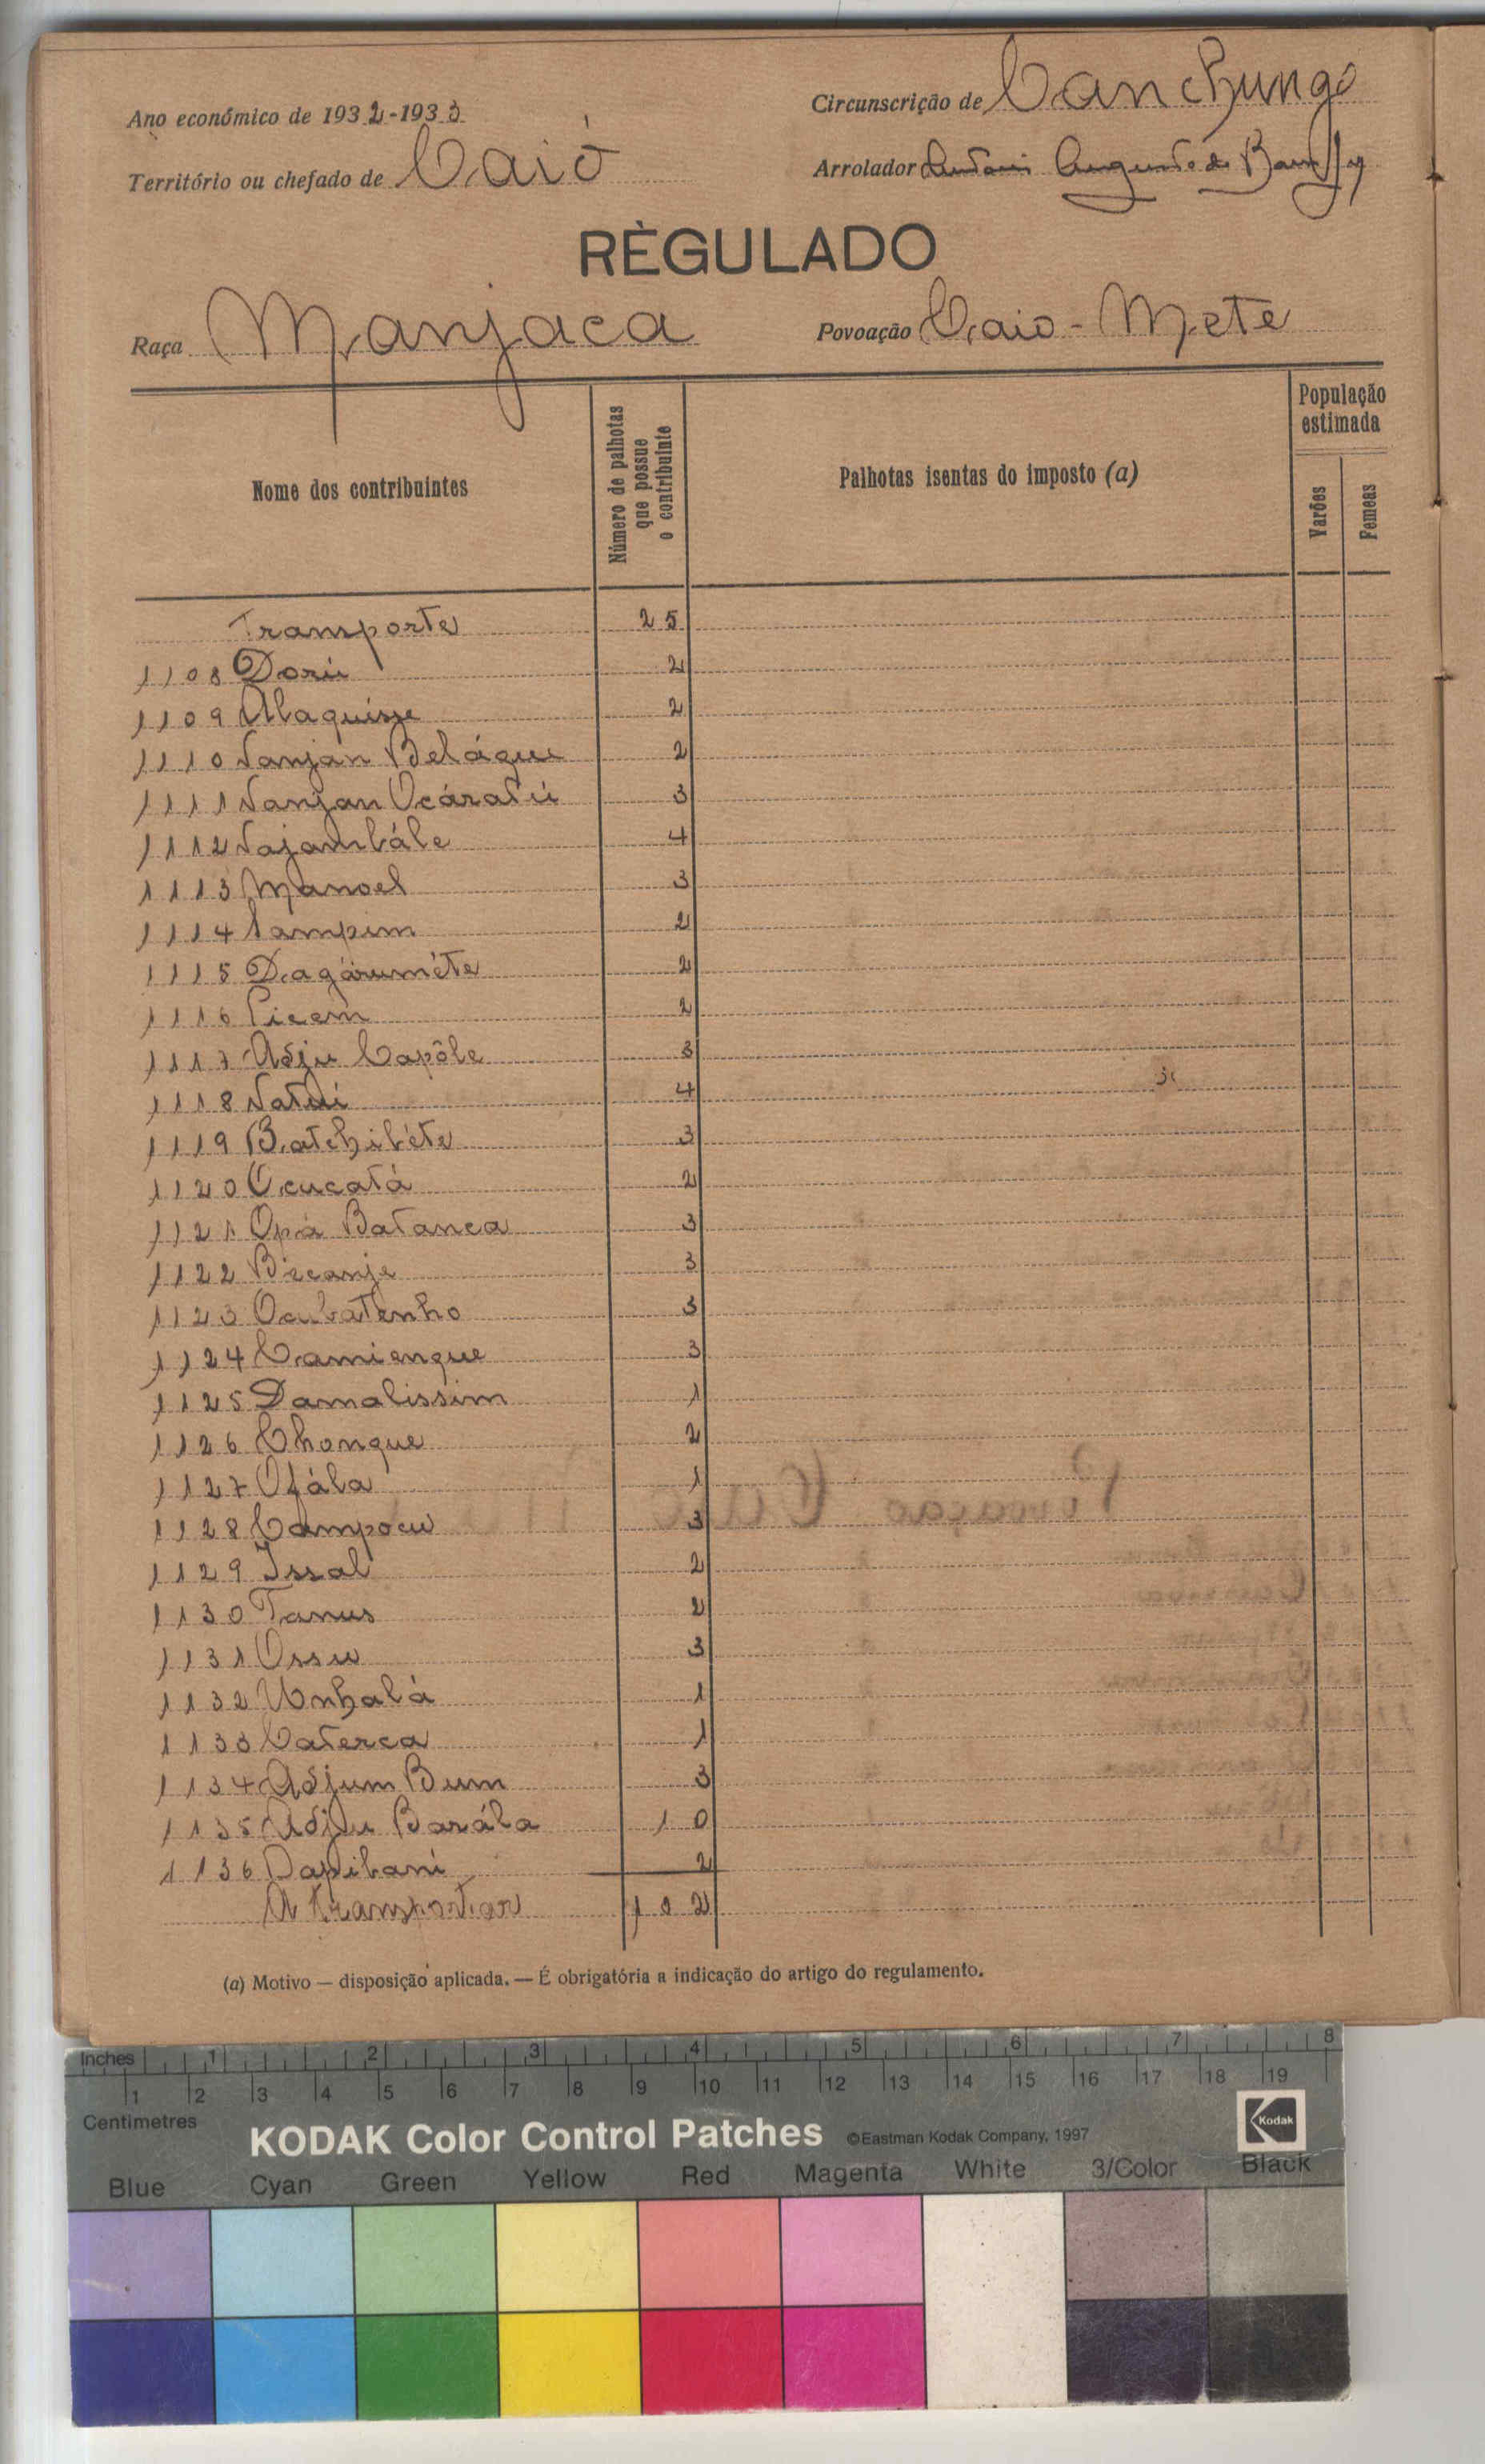 Ano económico de 1932-1933
Circunscrição de Canchungo
Território ou chefado de Caió
Arrolador Augusto de
RÈGULADO
Raça Manjaca
Povoação Caio-Mete
Nome dos contribuintes
Número de palhotas que possue o contribuinte
Palhotas isentas do imposto (a)
População estimada
Varões
Femeas
Transporte 25
1108 Dorú 2
1109 Alaquisse 2
1110 Nanjan Belágue 2
1111 Nanjan Ocáratú 3
1112 Najambále 4
1113 Manoel 3
1114 Sampim 2
1115 Dagárumête 2
1116 Picem 2
1117 Adju Capôle 3
1118 Natui 4
1119 Batchibéte 3
1120 Ocucatá 2
1121 Opá Batanca 3
1122 Bicanje 3
1123 Ocubatenho 3
1124 Camiengue 3
1125 Damalissim 1
1126 Chongue 2
1127 Ofála 1
1128 Campocu 3
1129 Issal 2
1130 Tanus 2
1131 Ossu 3
1132 Unhalá 1
1133 Caterca 1
1134 Adjum Bum 3
1135 Adju Barála 10
1136 Dapibani 2
A transportar 102
(a) Motivo — disposição aplicada. — É obrigatória a indicação do artigo do regulamento.
Inches 1 2 3 4 5 6 7 8
1 2 3 4 5 6 7 8 9 10 11 12 13 14 15 16 17 18 19
Centimetres
KODAK Color Control Patches ©Eastman Kodak Company, 1997 Kodak
Blue Cyan Green Yellow Red Magenta White 3/Color Black